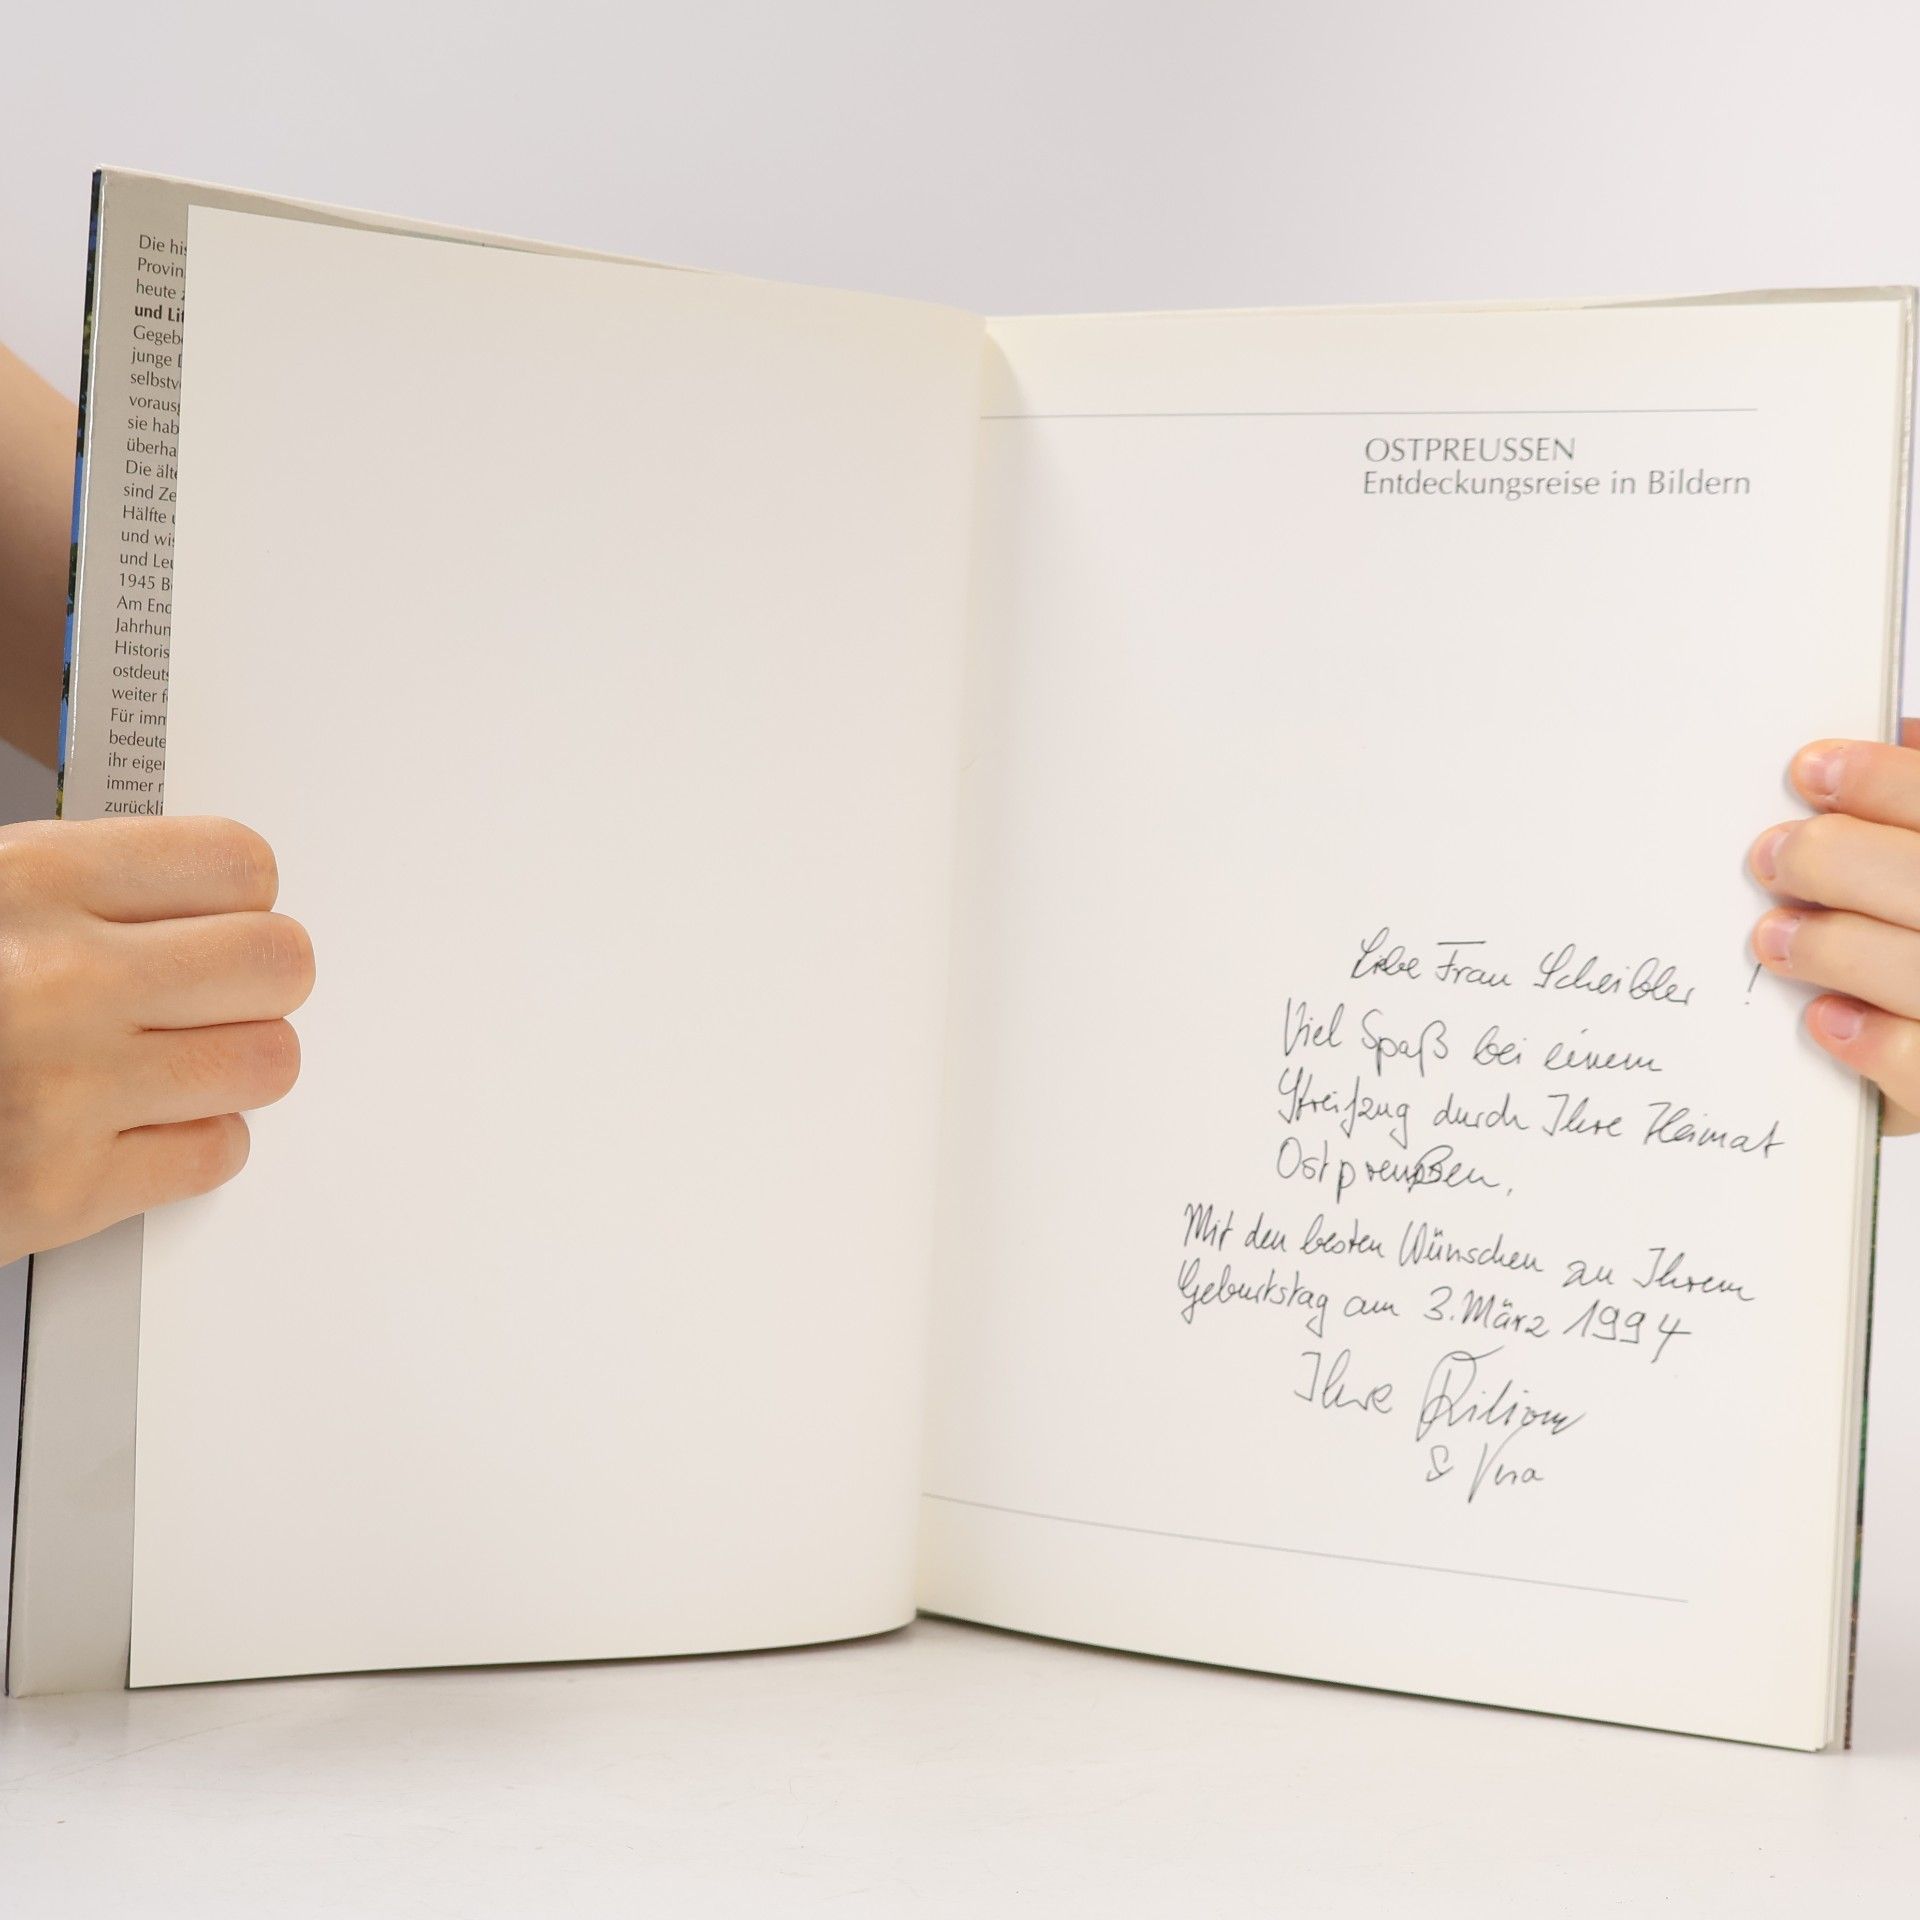 Die his
Provin
heute
und Lit
Gegeb
junge
selbstv
voraus
sie hab
überha
Die älte
sind Ze
Hälfte
und wi
und Leu
1945 B
Am End
Jahrhun
Historis
ostdeuts
weiter f
Für imm
bedeute
ihr eige
immer r
zurückli
OSTPREUSSEN
Entdeckungsreise in Bildern
Liebe Frau Scheibler !
Viel Spaß bei einem
Streifzug durch Ihre Heimat
Ostpreußen,
Mit den besten Wünschen zu Ihrem
Geburtstag am 3. März 1994
Ihre Kiliom
& Vera